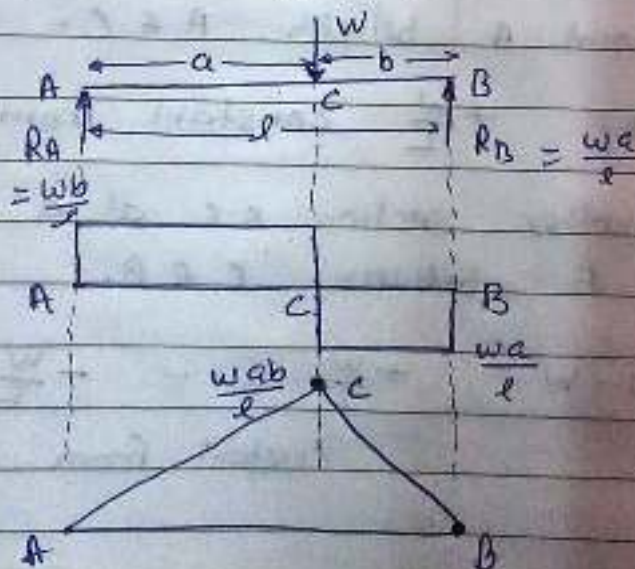 W
a b
A C B
l
RA RB = wa/l
= wb/l
A C B
wa/l
wab/l C
A B